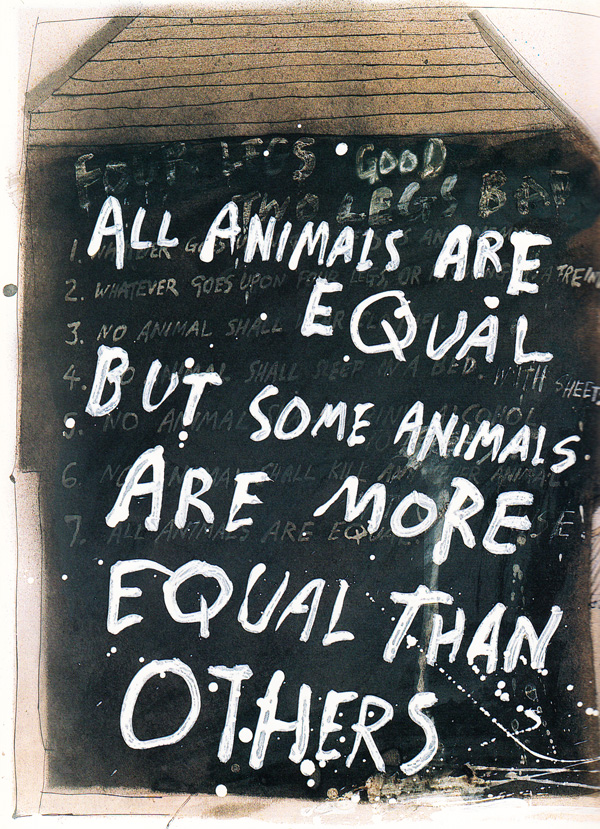 FOUR LEGS GOOD
TWO LEGS BAD
ALL ANIMALS ARE
1. WHATEVER GOES
2. WHATEVER GOES UPON FOUR LEGS, OR
EQUAL
3. NO ANIMAL SHALL
4. NO ANIMAL SHALL SLEEP IN A BED. WITH SHEETS
BUT SOME ANIMALS
5. NO ANIMAL ALCOHOL
6. NO ANIMAL SHALL KILL ANY OTHER ANIMAL.
ARE MORE
7. ALL ANIMALS ARE EQUAL
EQUAL THAN
OTHERS